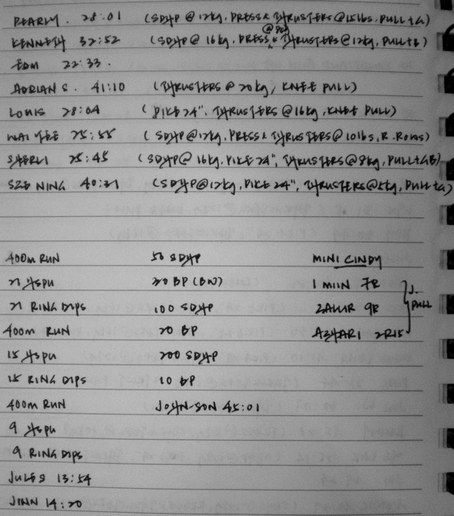 PEARLY. 28:01 (SDHP @ 12kg, PRESS & THRUSTERS @ 15lbs, PULL+G)
KENNETH 32:52 (SDHP @ 16kg, PRESS & THRUSTERS @ 12kg, PULL+B)
EDM 22:33.
ADRIAN S. 41:10 (THRUSTERS @ 20kg, KNEE PULL)
LOUIS 28:04 (PIKE 24", THRUSTERS @ 16kg, KNEE PULL)
WAI YEE 25:55 (SDHP @ 12kg, PRESS & THRUSTERS @ 10lbs, R. ROWS)
SHERLI 25:45 (SDHP @ 16kg, PIKE 24", THRUSTERS @ 8kg, PULL+GB)
SZE NING 40:21 (SDHP @ 12kg, PIKE 24", THRUSTERS @ 5kg, PULL+G)
400m RUN 50 SDHP MINI CINDY
21 HSPU 30 BP (BW) 1 MIIN 7R
21 RING DIPS 100 SDHP ZAHUR 9R J. PULL
400m RUN 20 BP AZHARI 2R15
15 HSPU 200 SDHP
15 RING DIPS 10 BP
400m RUN JOHN-SON 45:01
9 HSPU
9 RING DIPS
JULES 13:54
JINN 14:20